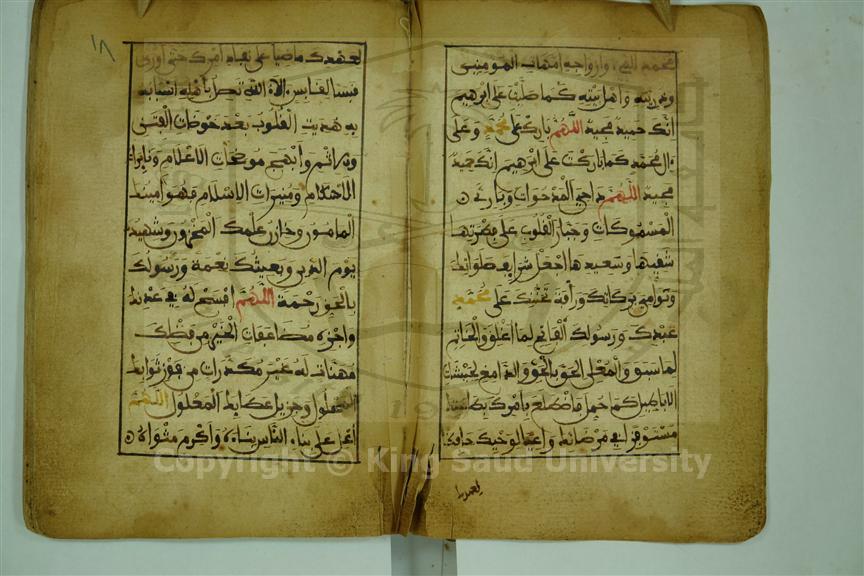 محمد النبي وازواجه امهات المومنين
وذريته واهل بيته كما صليت على ابرهيم
انك حميد مجيد اللهم بارك على محمد وعلى
ءال محمد كما باركت على ابرهيم انك حميد
مجيد اللهم داحي المدحوات وبارئ
المسموكات وجبار القلوب على فطرتها
شقيها وسعيدها اجعل شرايف صلواتك
ونوامي بركاتك ورأفة تحننك على محمد
عبدك ورسولك الفاتح لما اغلق والخاتم
لما سبق والمعلن الحق بالحق والدامغ لجيشات
الاباطيل كما حمل فاضطلع بامرك بطاعتك
مستوفزا في مرضاتك واعيا لوحيك حافظا
لعهدك
١٨
لعهدك ماضيا على نفاذ امرك حتى اورى
قبسا لقابس الاء الله تصل باهله اسبابه
به هديت القلوب بعد خوضات الفتن
والاثم وابهج موضحات الاعلام ونايرات
الاحكام ومنيرات الاسلام فهو امينك
المامون وخازن علمك المخزون وشهيدك
يوم الدين وبعيثك نعمة ورسولك
بالحق رحمة اللهم افسح له في عدنك
واجزه مضاعفات الخير من فضلك
مهنات له غير مكدرات من فوز ثوابك
المحلول وجزيل عطايك المعلول اللهم
اعل على بناء الناس بناءه واكرم مثواه
Copyright © King Saud University